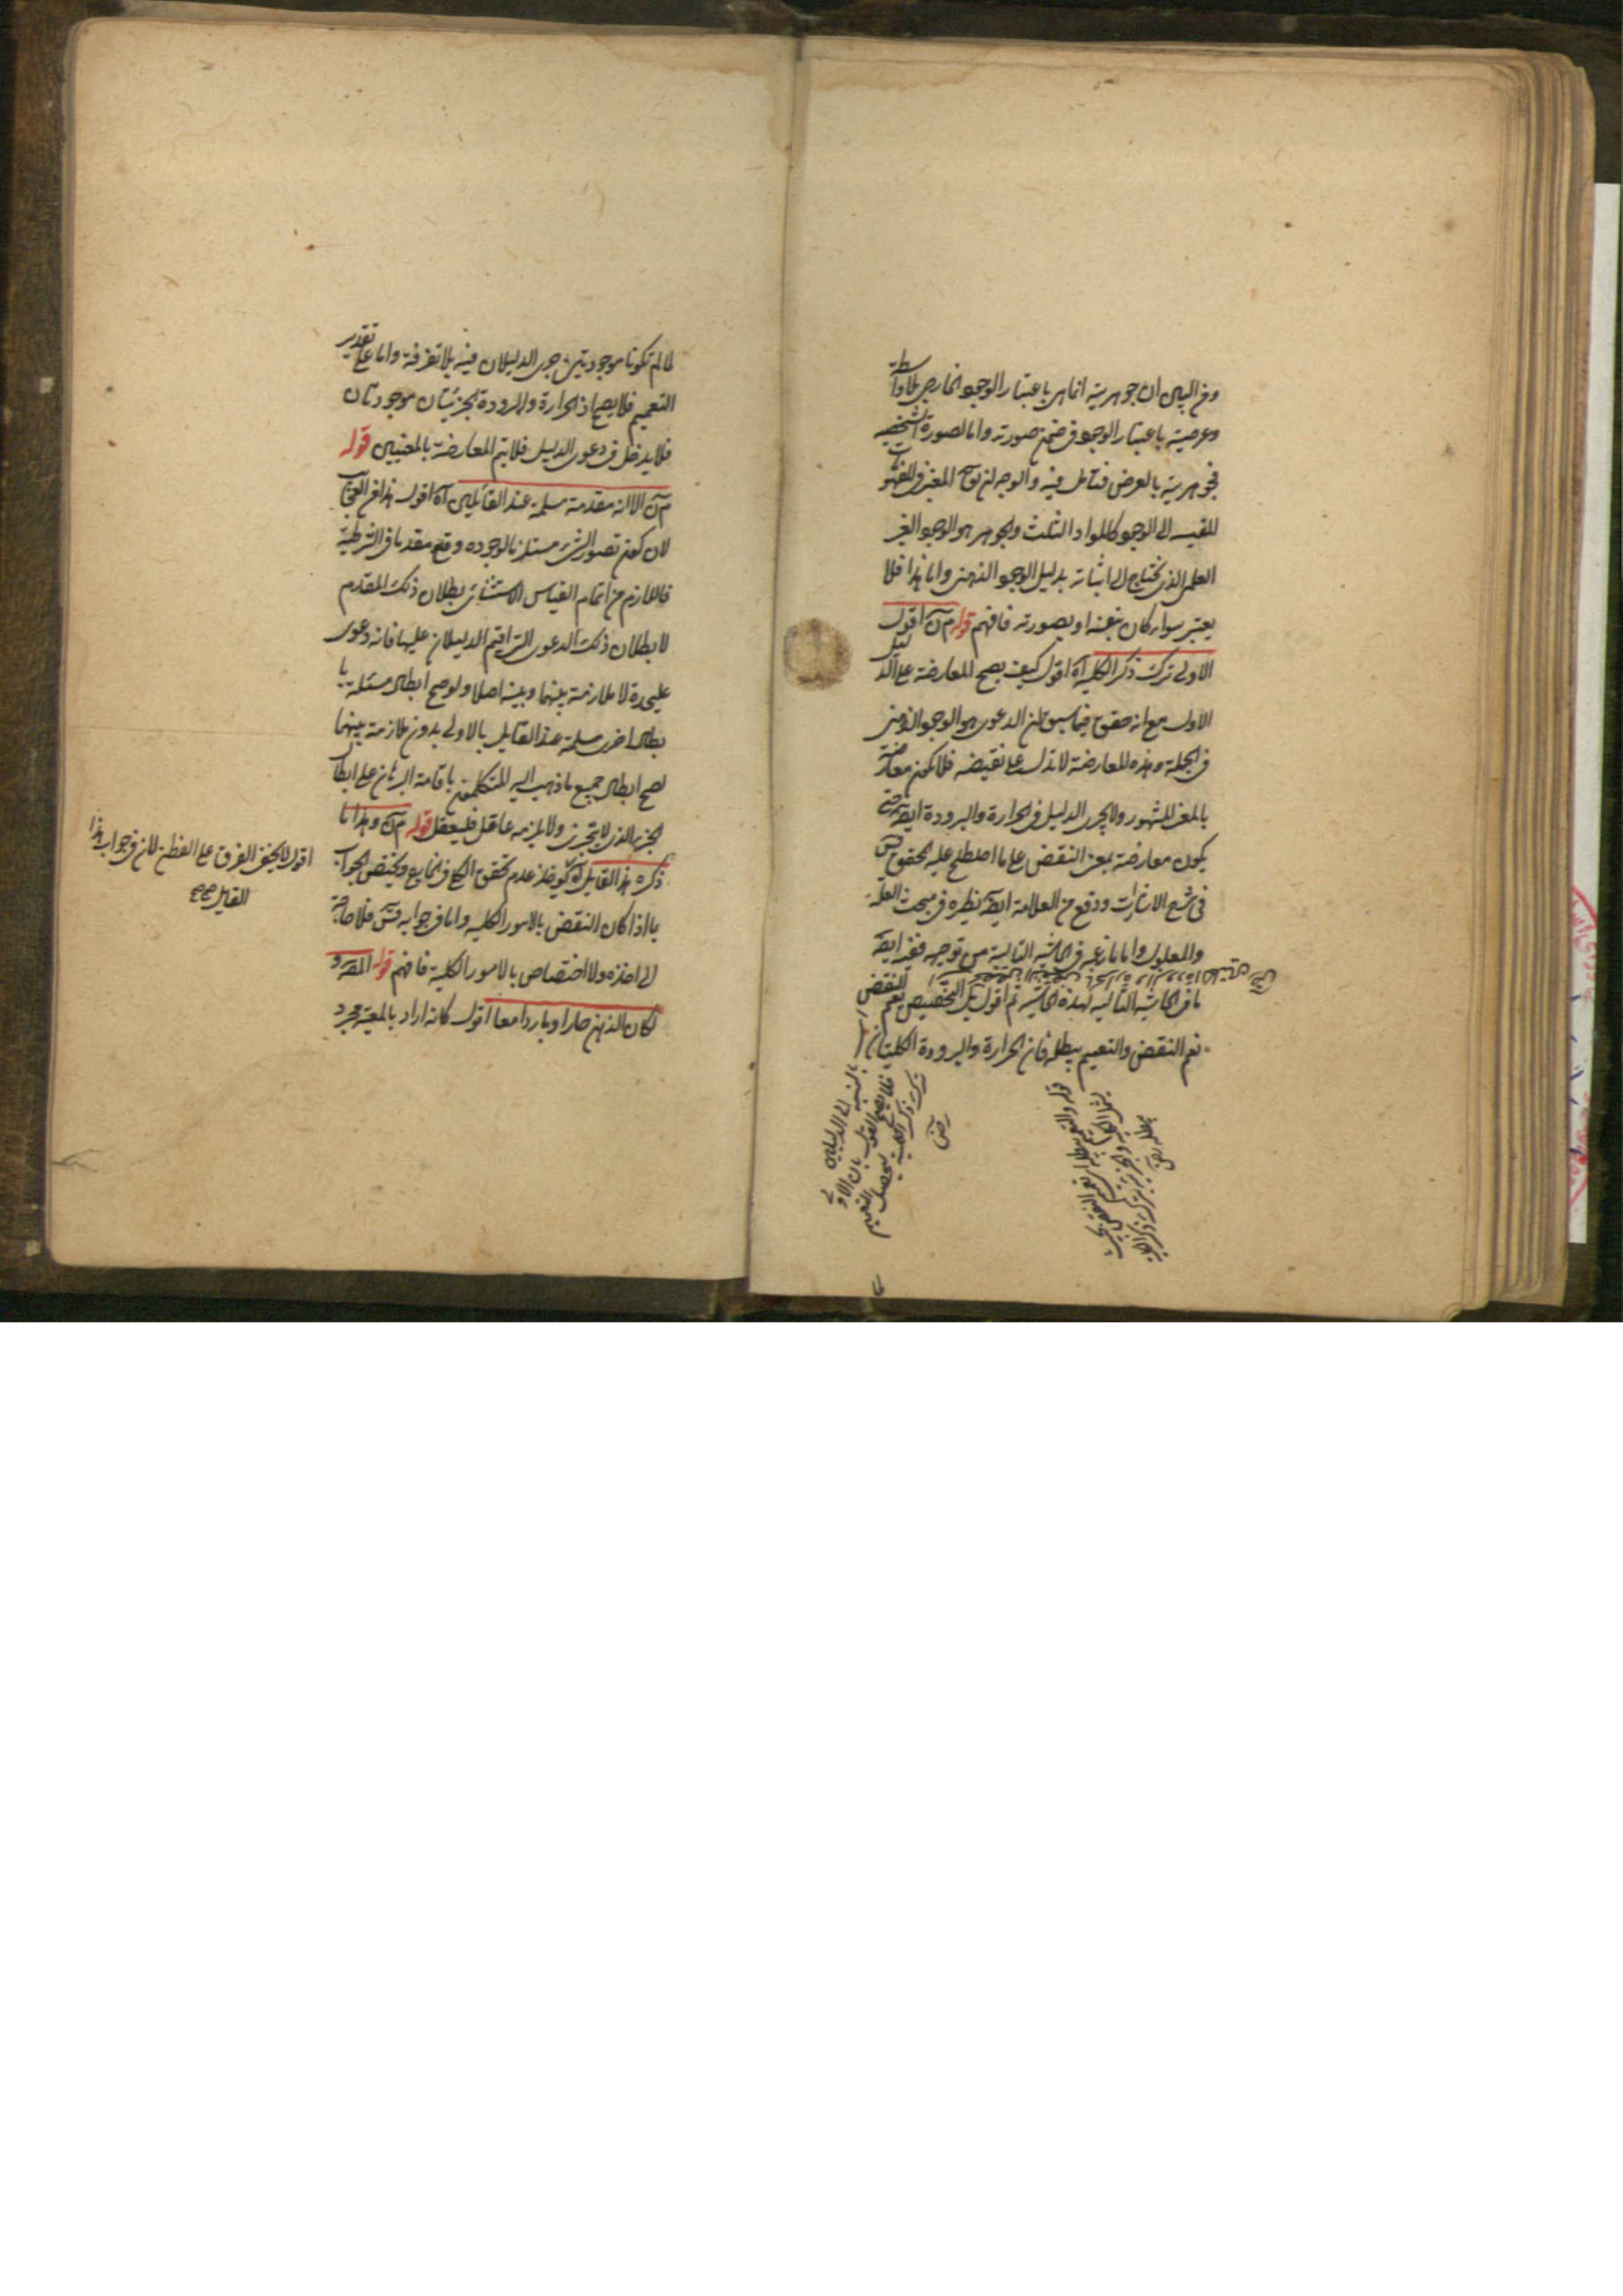 وفي البين ان جوهرية انما هي باعتبار الوجود الخارجي بلا واسطة
وعرضية باعتبار الوجود في ضمن صورته واما لصورة الشخصية
فجوهرية بالعرض فتأمل فيه والوجه
للقيس الى الوجود كالمواد الثلث والجوهر هو الوجود الغير
العلمي الذي يحتاج الى اثباته بدليل الوجود الذهني واما هذا فلا
يعتبر سواء كان بنفسه او بصورته فافهم قوله م ن اقول
الاولى ترك ذكر الكلية آه اقول كيف يصح المعارضة على الدليل
الاول مع انه حقق فيما سبق ان الدعوى هو الوجود الذهني
في الجملة وهذه المعارضة لا تدل على نقيضه فلا تكون معارضة
بالمعنى المشهور ولا يجري الدليل في الحرارة والبرودة ايضا حتى
يكون معارضة بمعنى النقض على ما اصطلح عليه المحقق
في شرح الاشارات ووقع من العلامة ايضا نظيره في مبحث العلة
والمعلول واما ما زعمه في الحاشية التالية من توجيه ففيه ايضا
ما في الحاشية التالية لهذه الحاشية ثم اقول بل التخصيص يعم النقض
نعم النقض والتعميم يبطله فان الحرارة والبرودة الكليتان
بالنسبة الى الدليلين
فلا يصح القول بان الاولى
ترك ذكر الكلية ليحصل التعميم
قوله والتعميم يبطله اي تعميم النقض بحيث
يشمل الكلية والجزئية بترك ذكر الكلية
يبطله
لما لم تكونا موجودتين جرى الدليلان فيه بلا تفرقة واما على تقدير
التعميم فلا يصح اذ الحرارة والبرودة الجزئيتان موجودتان
فلا يدخل في دعوى الدليل فلا يتم المعارضة بالمعنيين قوله
م ن الا انه مقدمة مسلمة عند القائلين آه اقول هذا من العجائب
لان كون تصور الشيء مستلزما لوجوده وقع مقدما في الشرطية
فاللازم من اتمام القياس الاستثنائي بطلان ذلك المقدم
لا بطلان ذلك الدعوى التي اقيم الدليلان عليها فانه دعوى
عليحدة لا ملازمة بينهما وبينه اصلا ولو صح ابطال مسئلة با
بطال اخرى مسلمة عند القايل بالاولى بدون ملازمة بينهما
لصح ابطال جميع ما ذهب اليه المتكلمون باقامة البرهان على ابطال
الجزء الذي لا يتجزى ولا يلتزمه عاقل فليعقل قوله م ن وهذا ما
ذكره هذا القايل آه عدم تحقق الكلي في الخارج ويختص الجواب
بما اذا كان النقض بالامور الكلية واما في جوابه فلا حاجة
الى اخذه ولا اختصاص بالامور الكلية فافهم قوله المقرر
لكان الذهن حارا وباردا معا اقول كانه اراد بالمعية مجرد
اقول لا يخفى الفرق على الفطن لان في جواب هذا
القايل